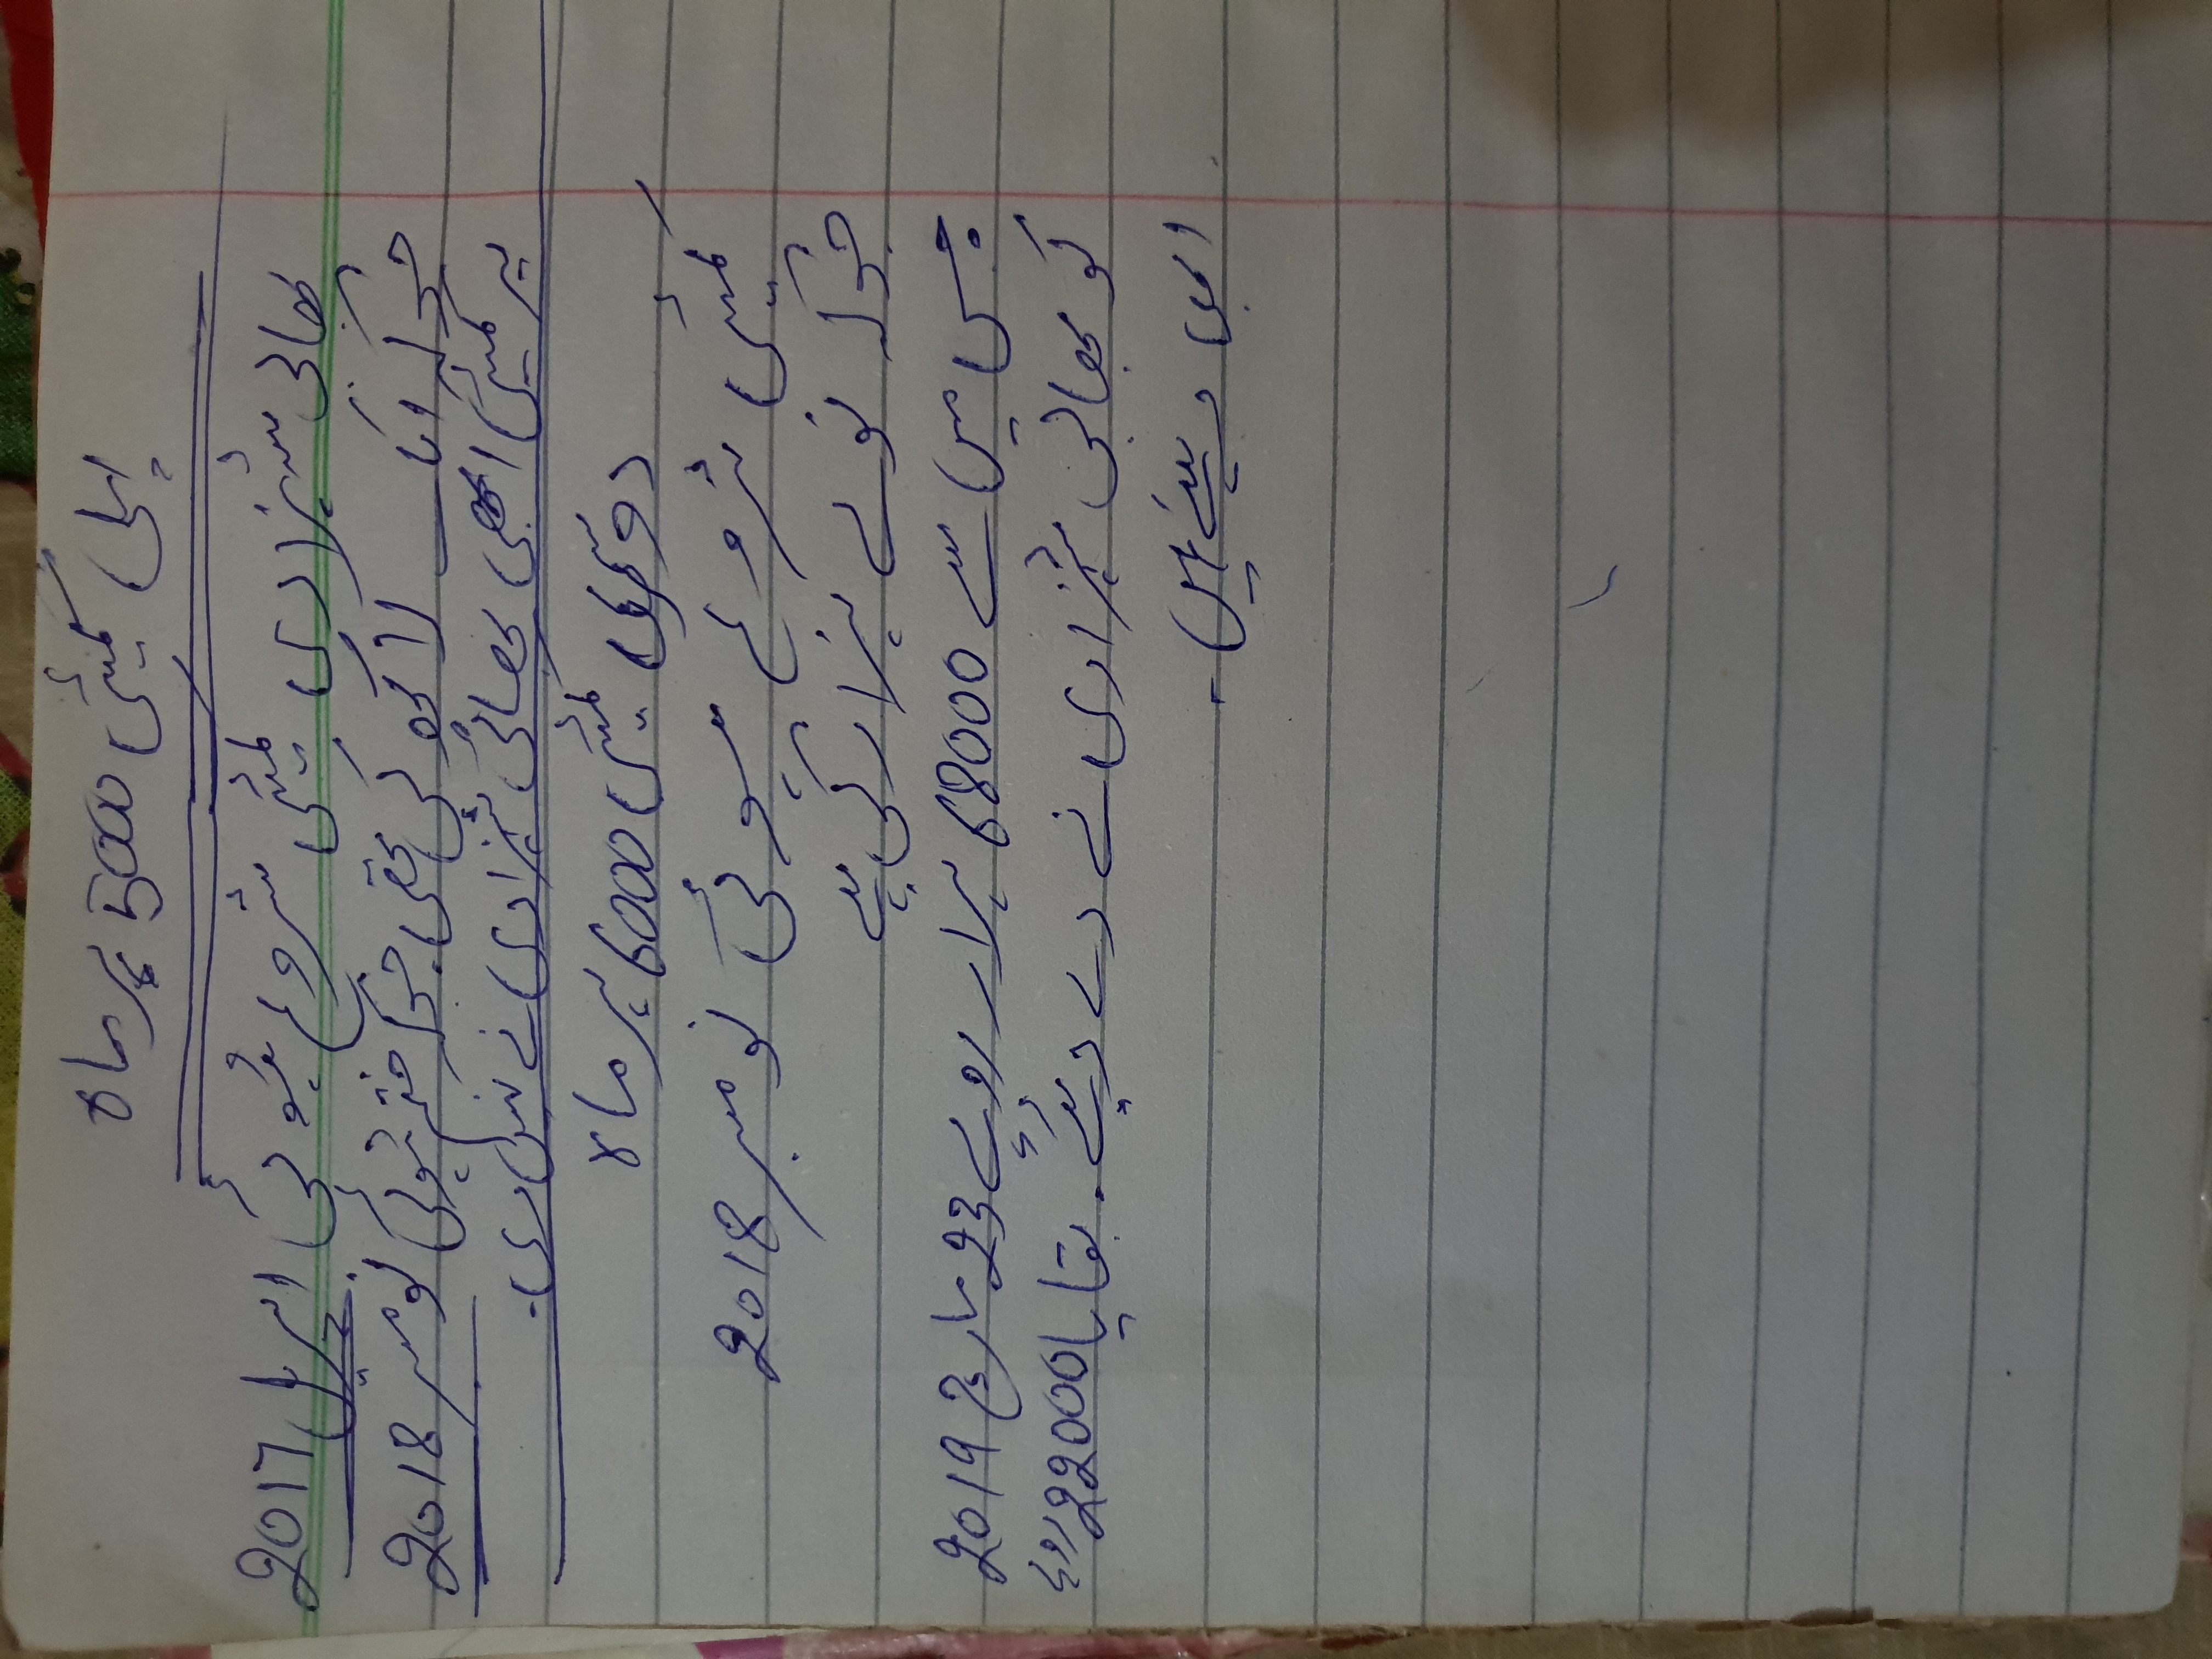 پہلی کمیٹی 5000 ہر ماہ
بھابی شہزادی کمیٹی شروع ہوئی اپریل 2017
جوکہ ایک لاکھ کی تھی جوکہ ختم ہوئی نومبر 2018
یہ کمیٹی ابھی بھابی شہزادی نے نہیں دی۔
دوسری کمیٹی 6000 ہر ماہ
کمیٹی شروع ہوئی نومبر 2018
جوکہ نوے ہزار کی ہے
جس میں سے 68000 ہزار روپے 23 مارچ 2019
کو بھابی شہزادی نے دے دیئے۔ بقایا 22000 روپے
ابھی دینے ہیں۔